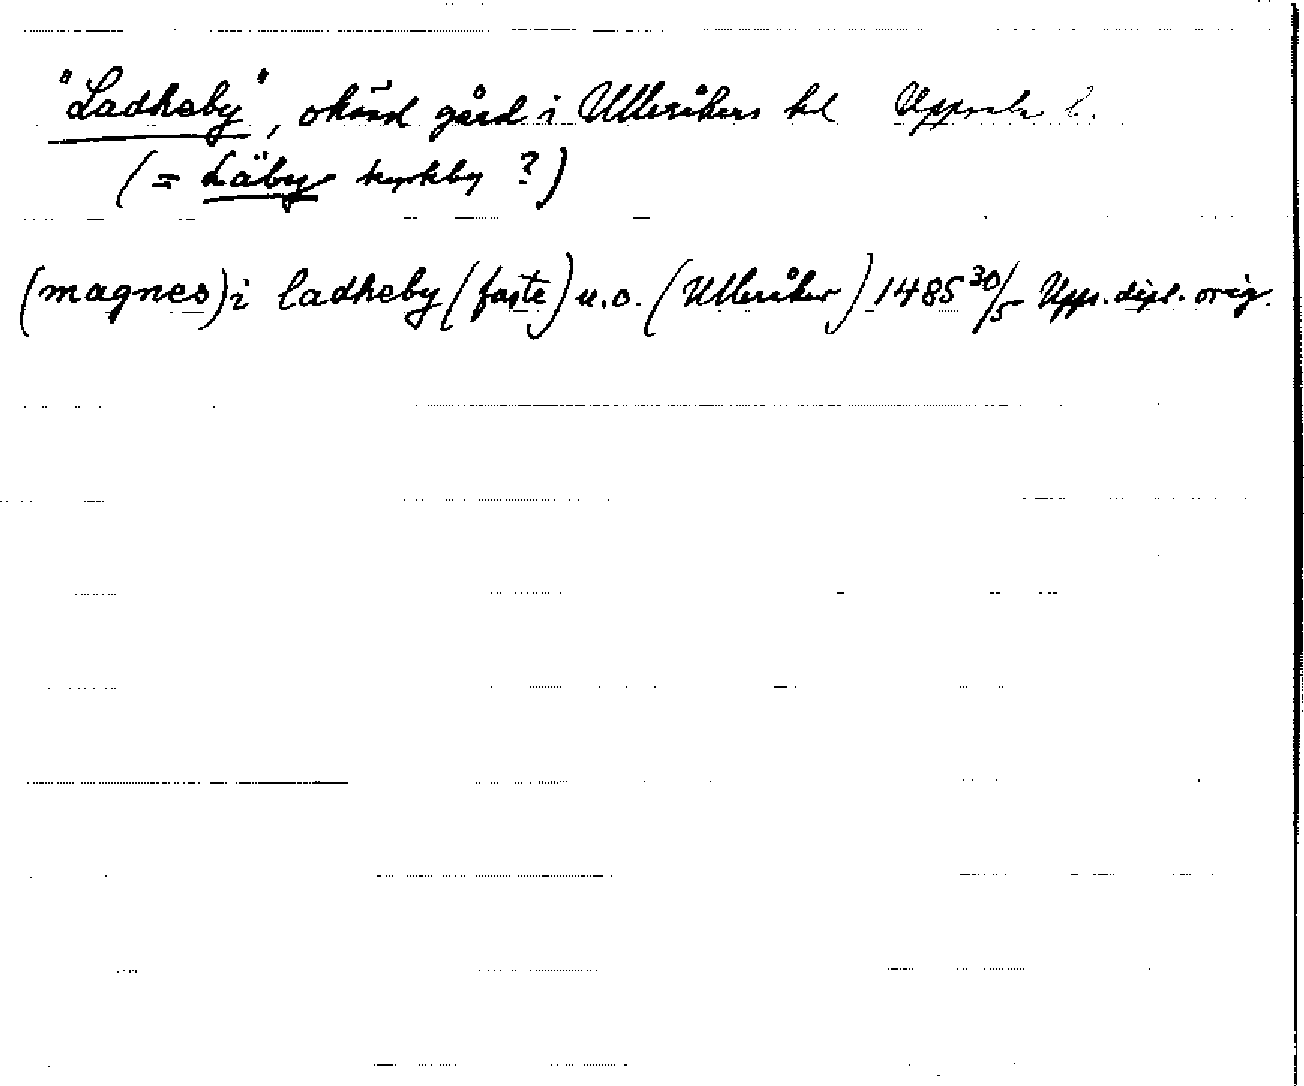 "Ladheby", okänd gård i Ulleråkers hd Uppsala l.
(= Läby kyrkby ?)
(magnes) i ladheby (faste) u.o. (Ulleråker) 1485 30/5 Upps. dipl. orig.